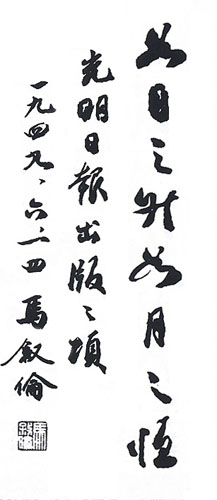 如日之升如月之恒
光明日報出版之頌
一九四九、六、一四 馬叙倫